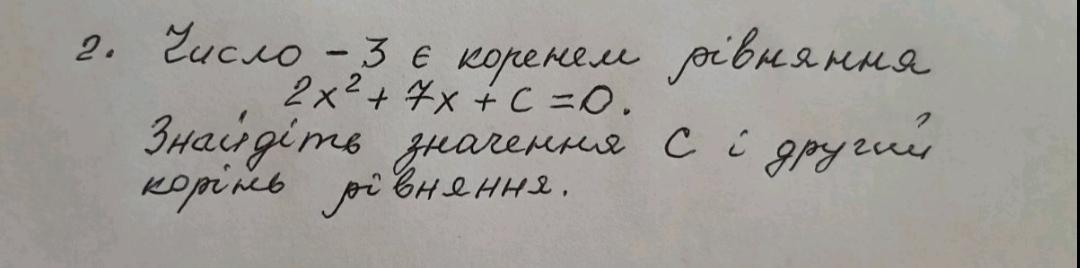 2. Число -3 є коренем рівняння
2x² + 7x + c = 0.
Знайдіть значення c і другий
корінь рівняння.